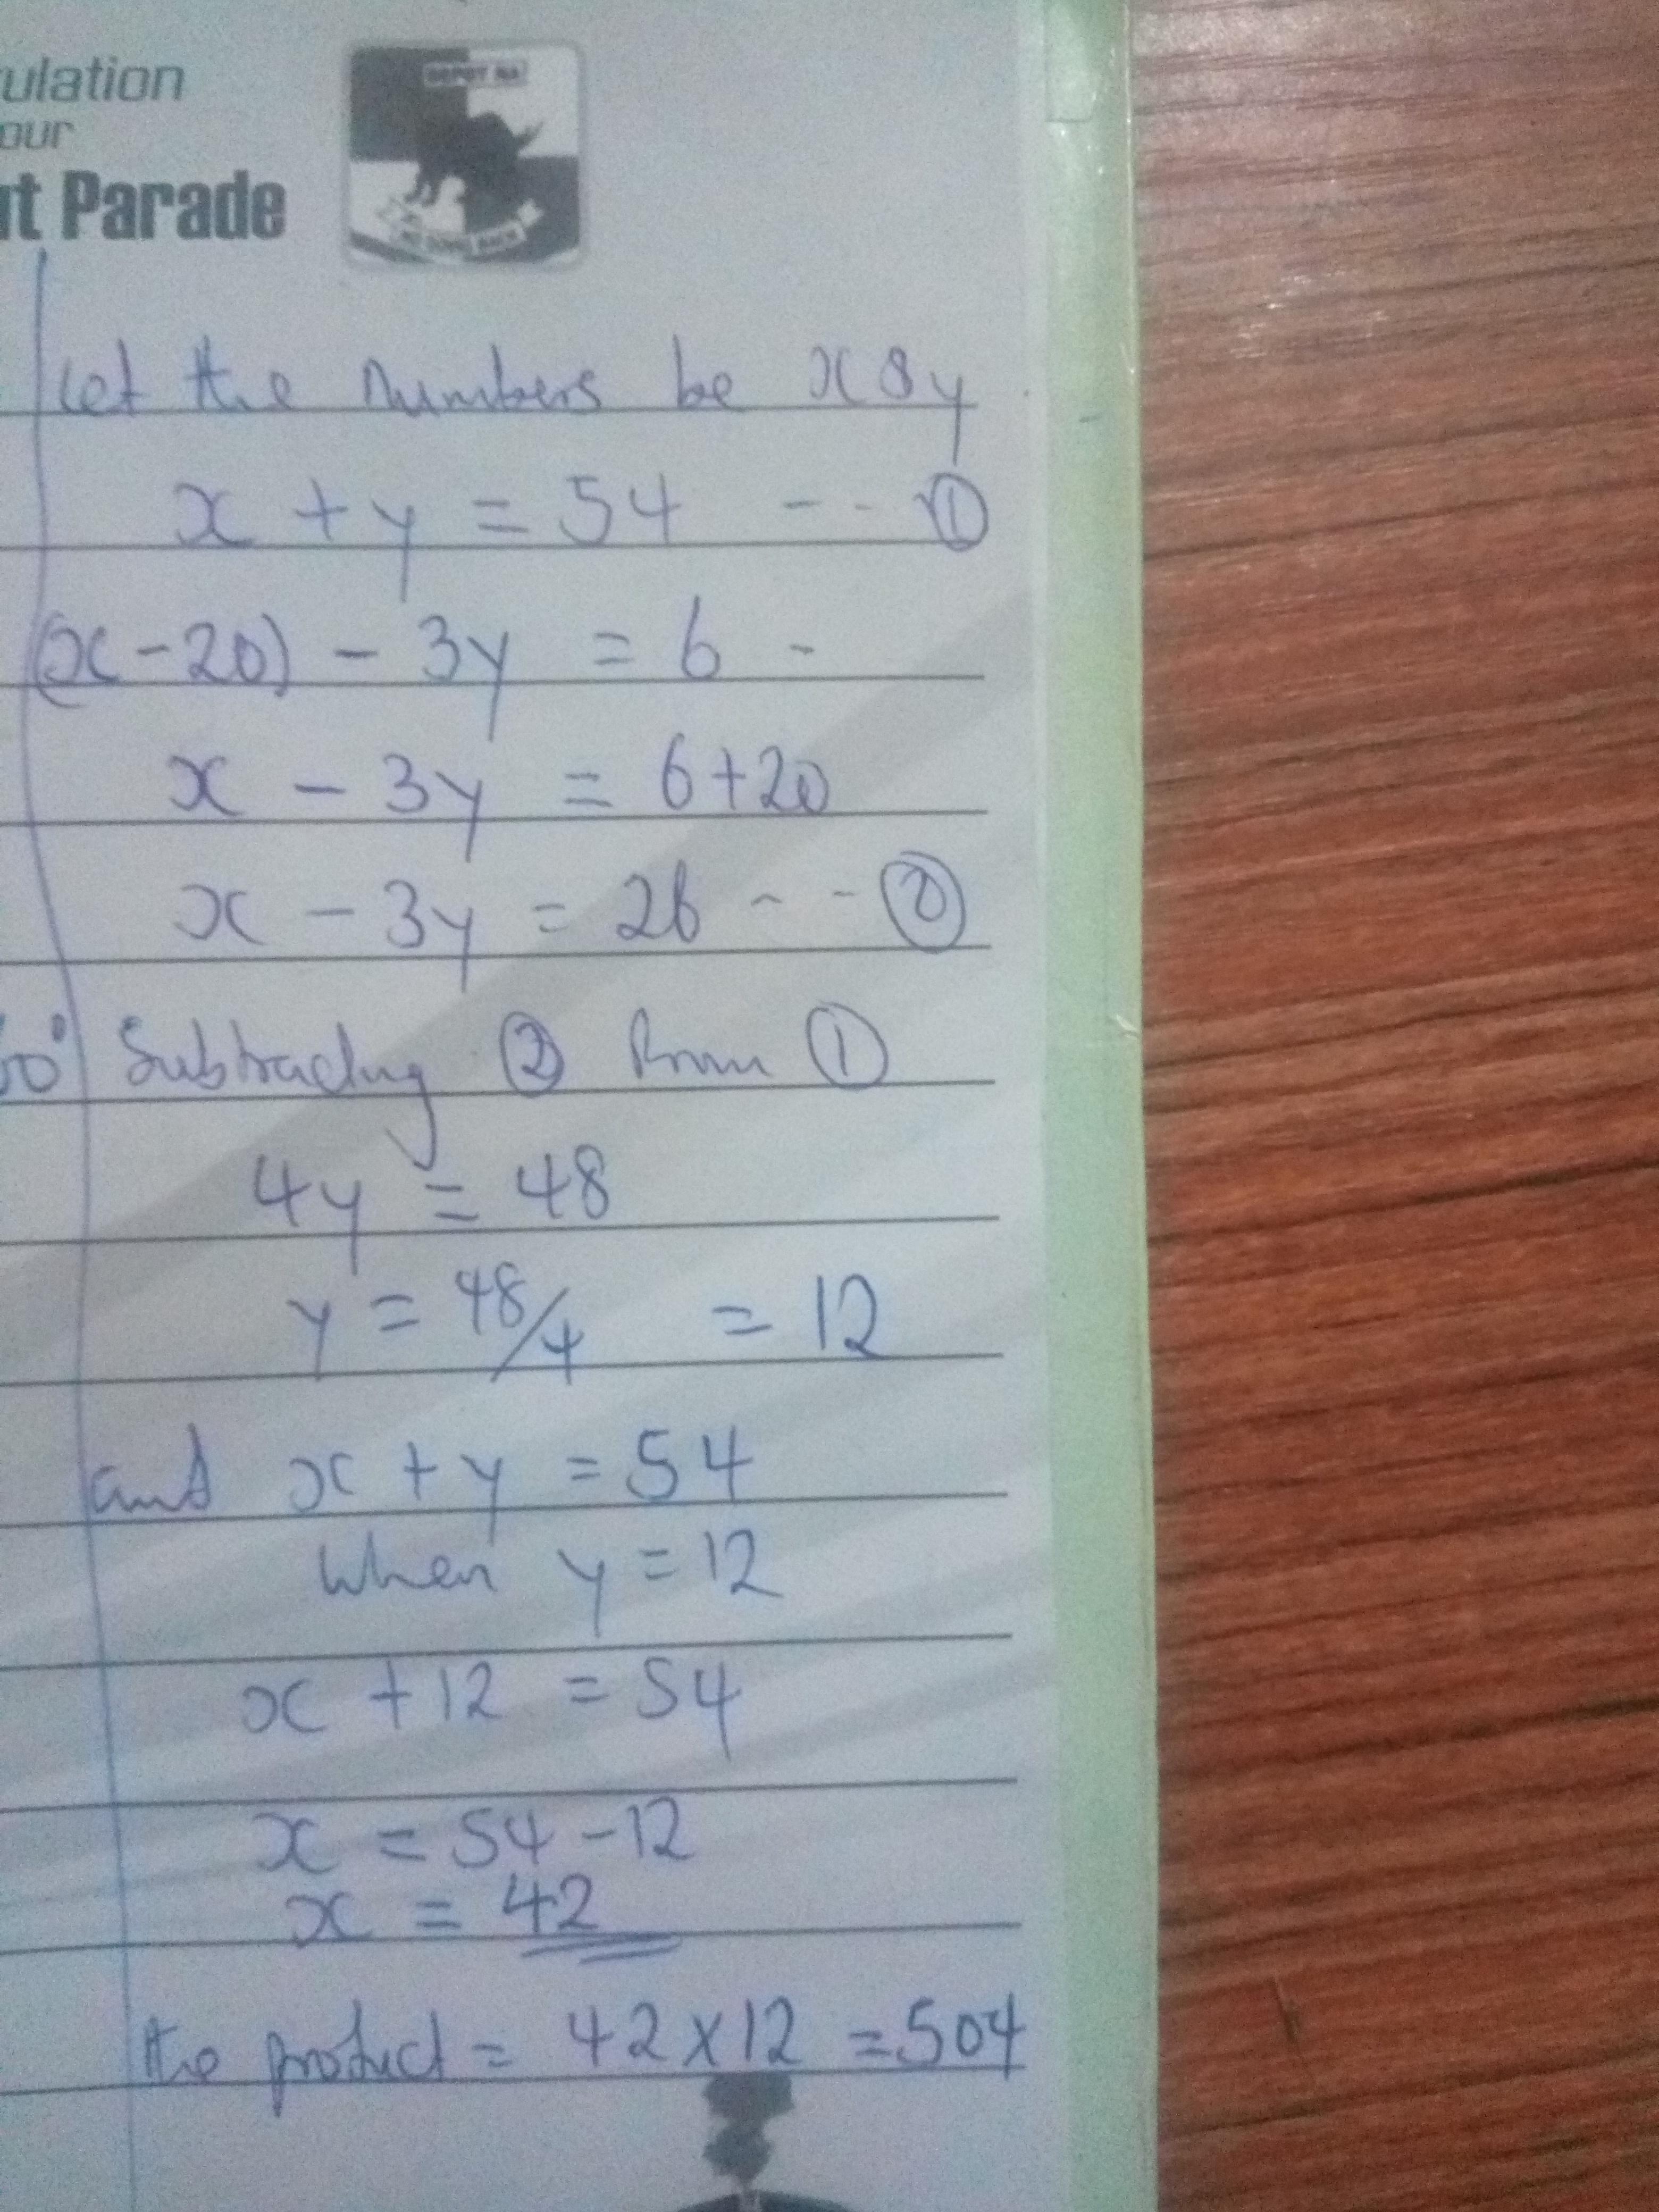 ulation
our
ut Parade
DEPOT NA
NO GOING BACK
Let the numbers be x & y
x + y = 54 -- ①
(x - 20) - 3y = 6 -
x - 3y = 6+20
x - 3y = 26 -- ②
Subtracting ② from ①
4y = 48
y = 48/4 = 12
and x + y = 54
when y = 12
x + 12 = 54
x = 54 - 12
x = 42
the product = 42 x 12 = 504